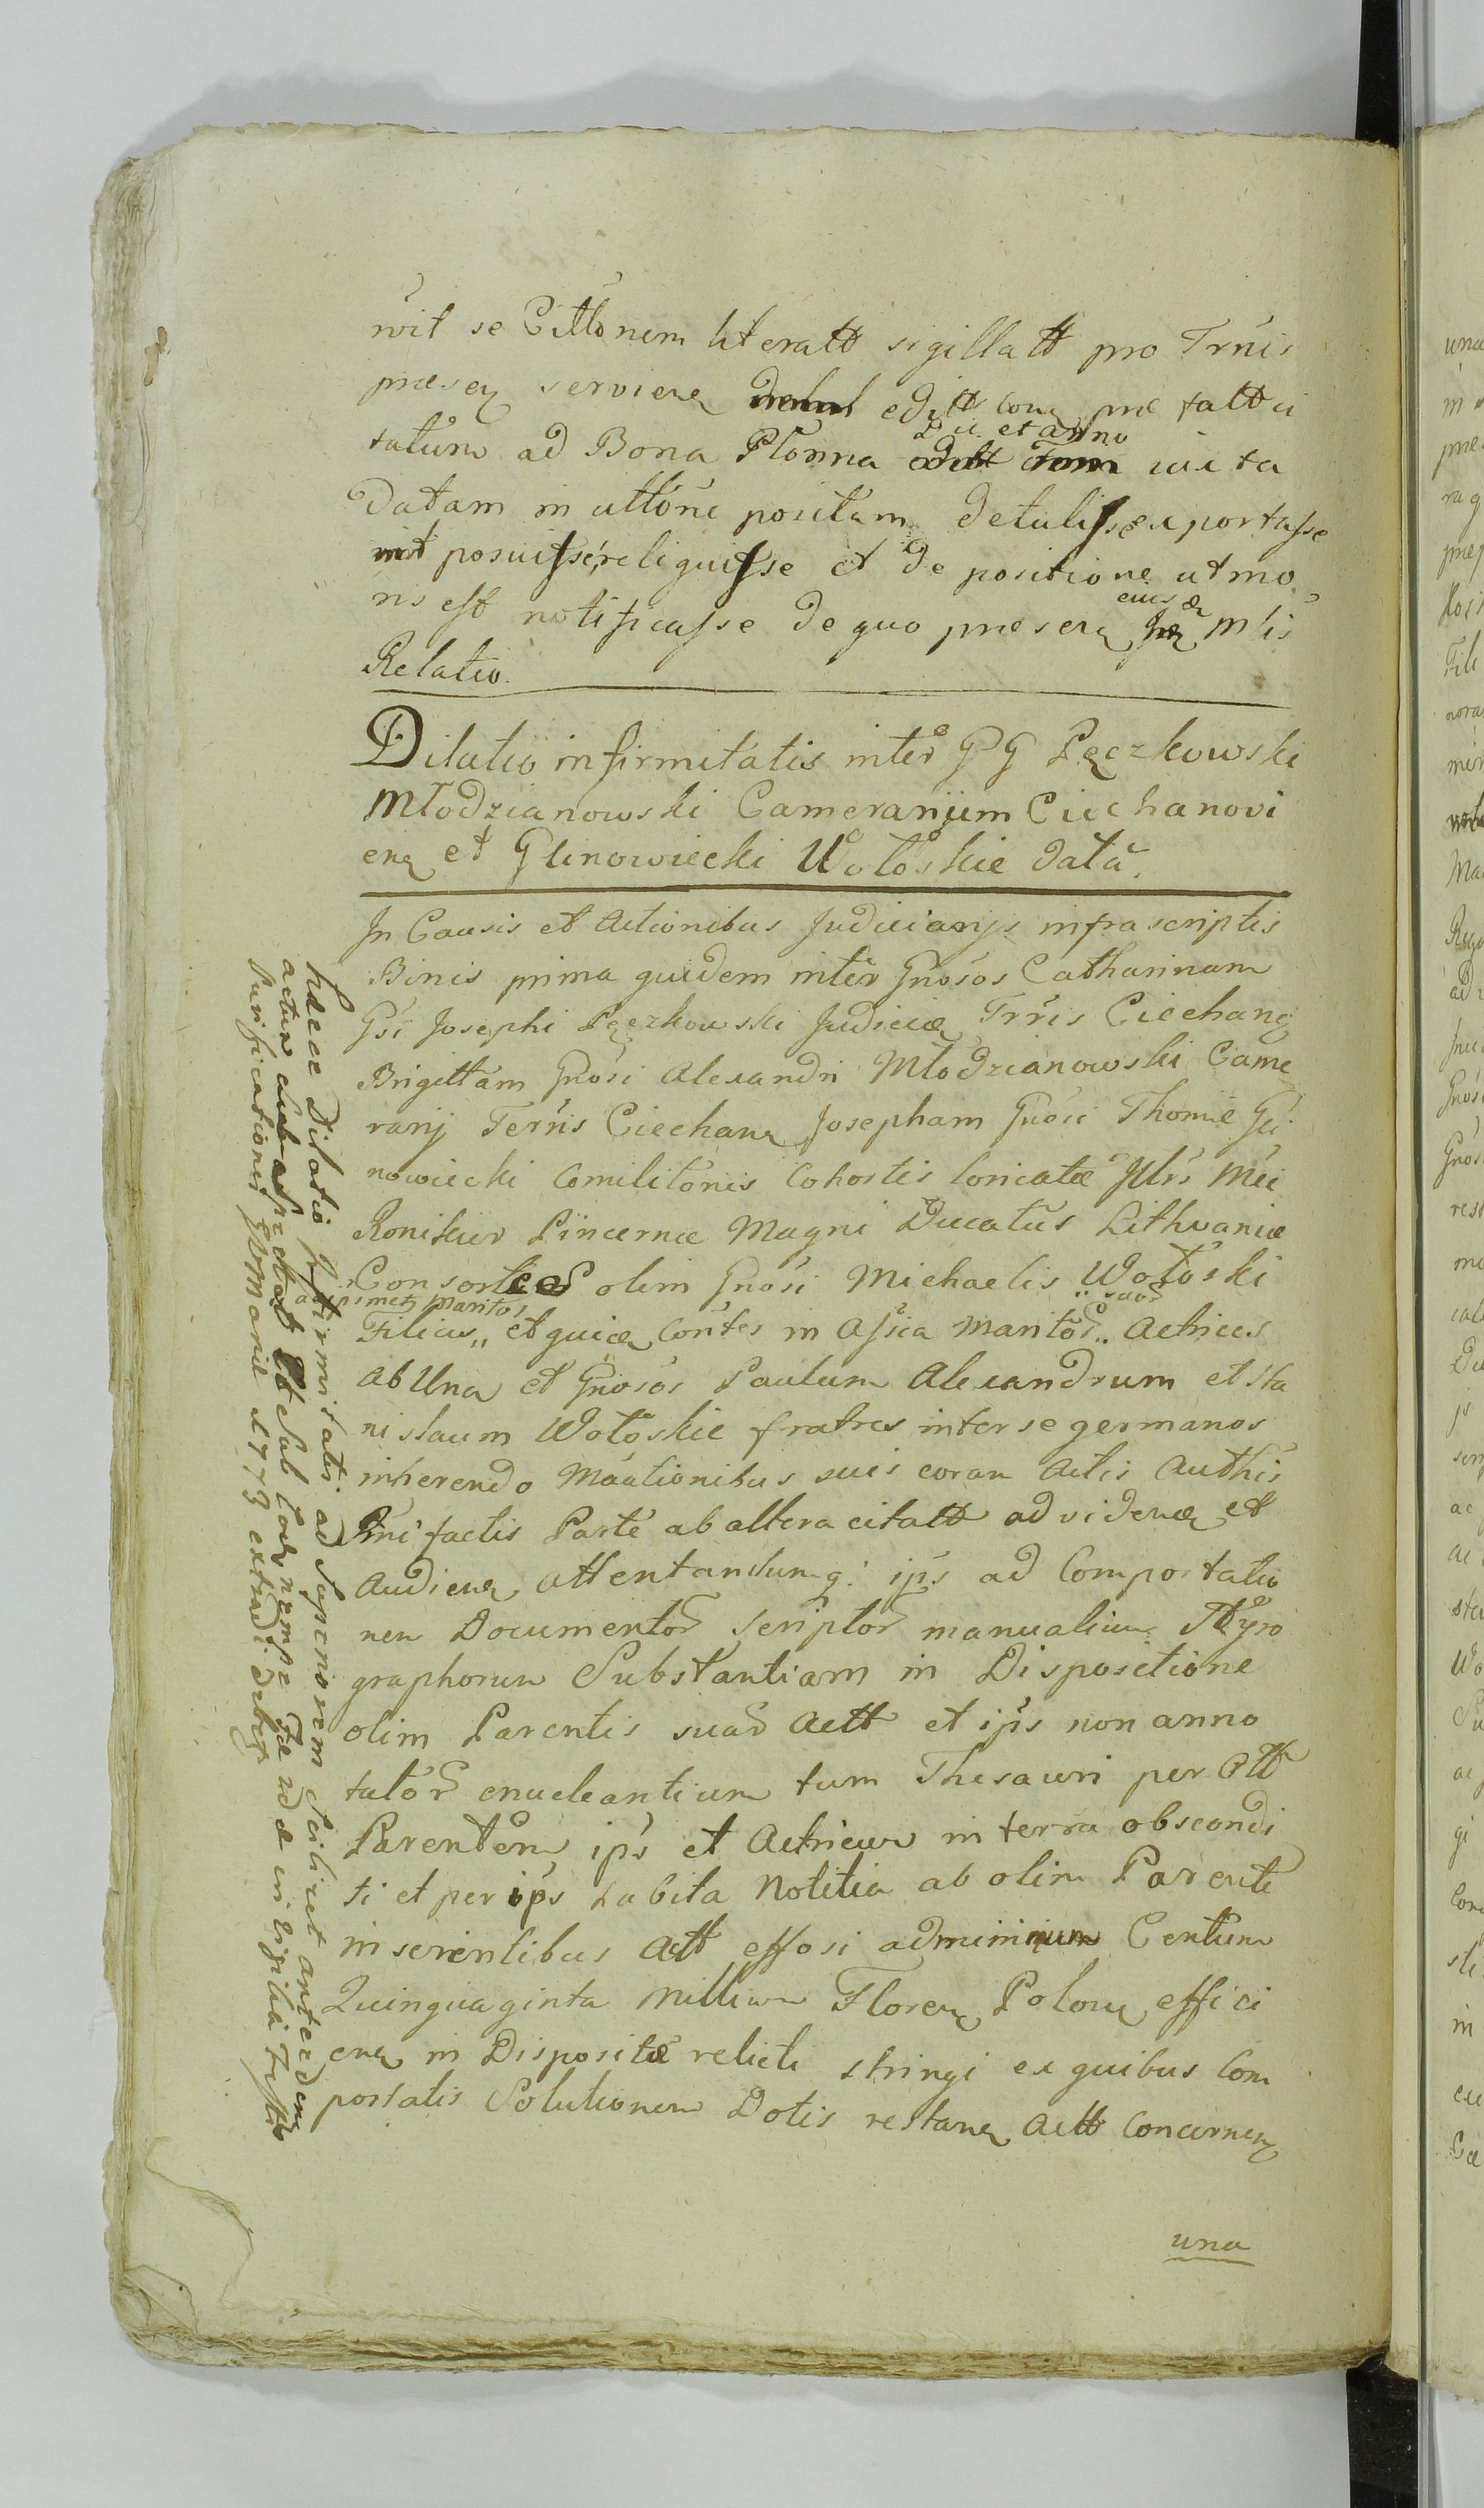 wit se Citt̃onem literatt sigillatt pro Trñis
præsen serviens editt cora præfatt ci
Die et anno
tatum ad Bona Płonna iuxta
Datam in citt̃one positam detulisse exportasse
posuisse reliquisse et de positione ut mo
eius
ris est notificasse de quo præsens Mlis
Relatio.
Dilatio infirmitatis inter GG Pęczkowski
Młodzianowski Camerarium Ciechanovi
en et Glinowiecki Wołoskie data.
In Causis et Actionibus Judiciarijs infrascriptis
Binis prima quidem inter Gnosos Catharinam
Gsi Josephi Pęczkowski Judicis Trris Ciechang
Brigittam Gnosi Alexandri Młodzianowski Came
rarij Terris Ciechan Josepham Gnosi Thomæ Gli
nowiecki Comilitonis Cohortis loricatæ Illris Mci
Roniker Pincernæ Magni Ducatus Lithvaniæ
Consortes olim Gnosi Michaelis Wołoski
ac ipsmet Maritos
suos
Filias et quice contes in Assia Maritor Actrices
ab Una et Gnosos Paulum Alexandrum et Sta
nislaum Wołoskie fratres inter se germanos
inherendo Maationibus suis coram Actis Authis
Pñi factis Parte ab altera citatt ad videns et
Audiens attentandum q. ips ad Comportatio
nem Documentor Scriptor manualium Chyro
graphorum Substantiam in Dispositione
olim Parentis suar Actt et ips non anno
tator enucleantium tum Thesauri per Ott
Parentem ips et Actricum in terra abscondi
ti et per ips habita Notitia ab olim Parente
inserientibus Actt effosi adminimum Centum
Quinquaginta Millium Floren Polon effici
en in Disposite relicti stringi ex quibus Com
portatis Solutionem Dotis restans Actt Concernen
una
hæcce Dilatio Infirmitatis ad Superiorem Scilicet anteredem
actum et Sub loco nempe Fæ ad
Purificationis Mariæ 1773 extradi debet